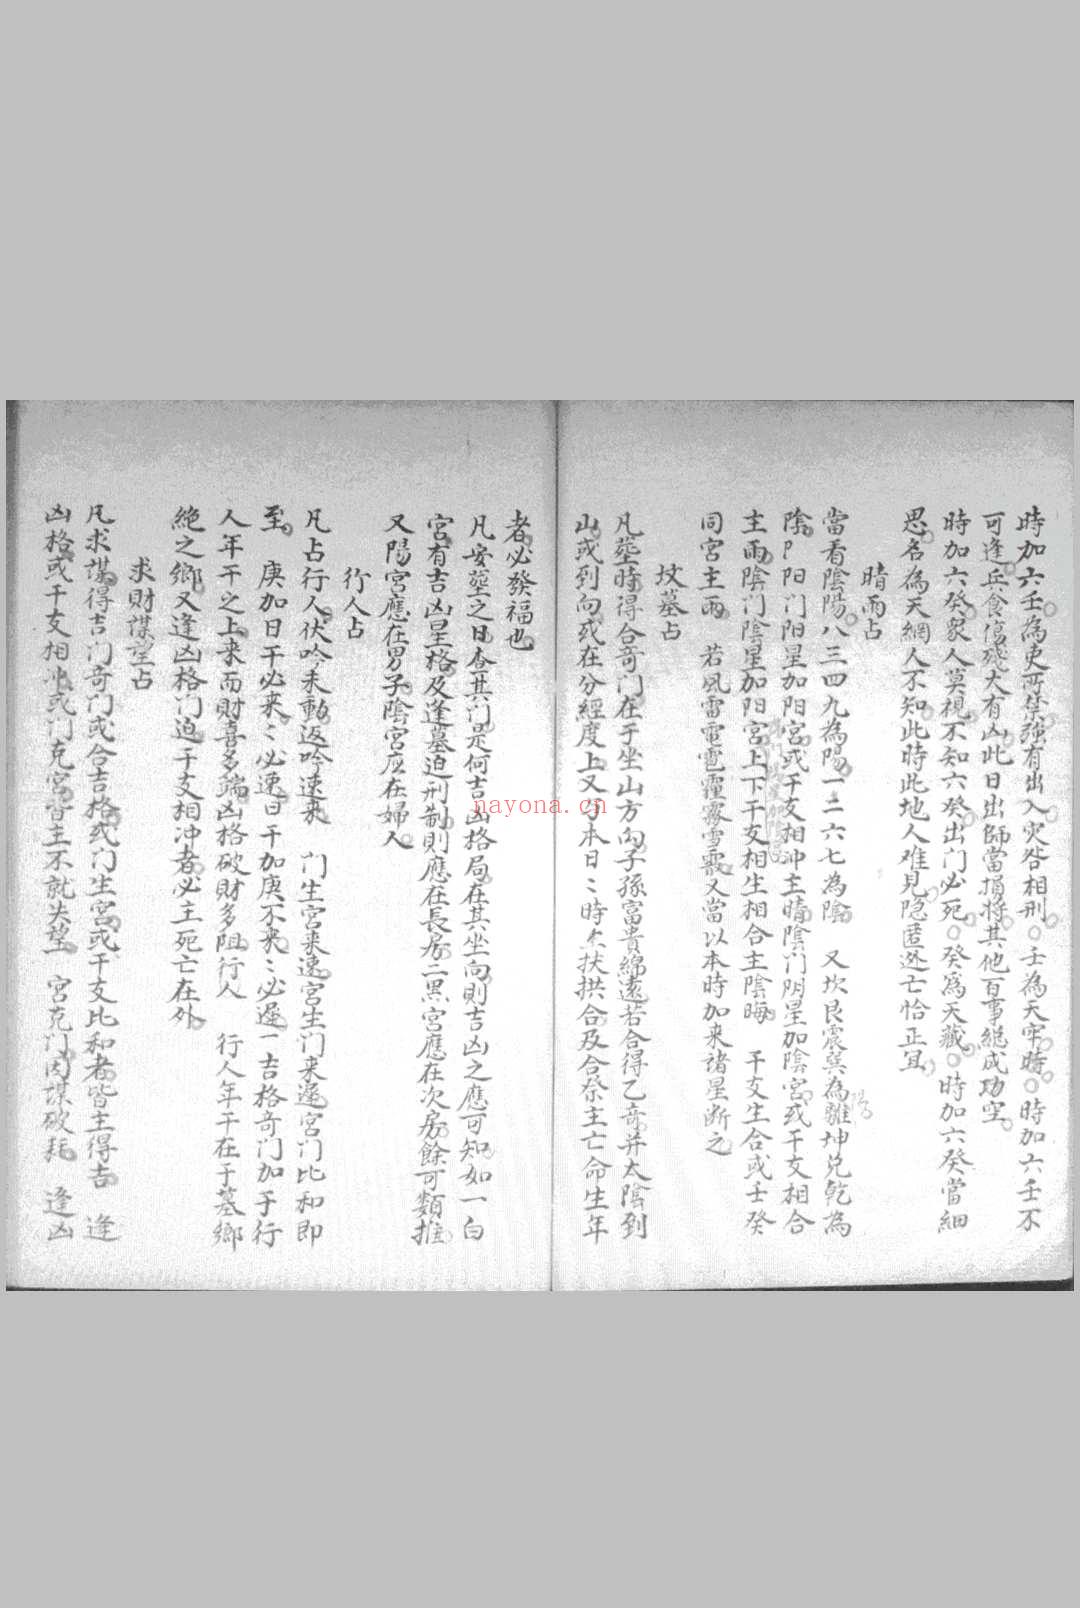 時加六壬為吏所禁強有出入灾咎相刑○壬為天牢時○時加六壬不
可逢兵食傷殘大有凶此日出師當損將其他百事總成功空
時加六癸衆人莫視不知六癸出门必死○癸爲天藏○時加六癸當細
思名為天網人不知此時此地人难見隐匿迯亡恰正宜
晴雨占
當看陰陽八三四九為陽一二六七為陰 又坎艮震巽為 離坤兌乾為
陰 阳门阳星加阳宮或干支相冲主晴陰门阴星加陰宮或干支相合
主雨陰门陰星加阳宮上下干支相生相合主陰晦 干支生合或壬癸
同宮主雨 若風雷電雹霾霧雪霰又當以本時加来諸星断之
坟墓占
凡塟時得合奇门在于坐山方向子孫富貴綿遠若合得乙奇并太陰到
山或到向或在分經度上又与本日〻時 扶拱合及合祭主亡命生年
者必發福也
凡安塟之日查其门是何吉凶格局在其坐向則吉凶之應可知如一白
宮有吉凶星格及逢墓迫刑制則應在長房二黑宮應在次房餘可類推
又陽宮應在男子陰宮应在婦人
行人占
凡占行人伏吟未動返吟速来 门生宮来速宮生门来遲宮门比和即
至 庚加日干必来〻必速日干加庚不来〻必遲一吉格奇门加于行
人年干之上来而財喜多端凶格破財多阻行人 行人年干在于墓鄉
絶之鄉又逢凶格门迫干支相冲者必主死亡在外
求財謀望占
凡求謀得吉门奇门或合吉格或门生宮或干支比和者皆主得吉 逢
凶格或干支相冲或门克宮皆主不就失望 宮克门因謀破耗 逢凶
nayona.cn